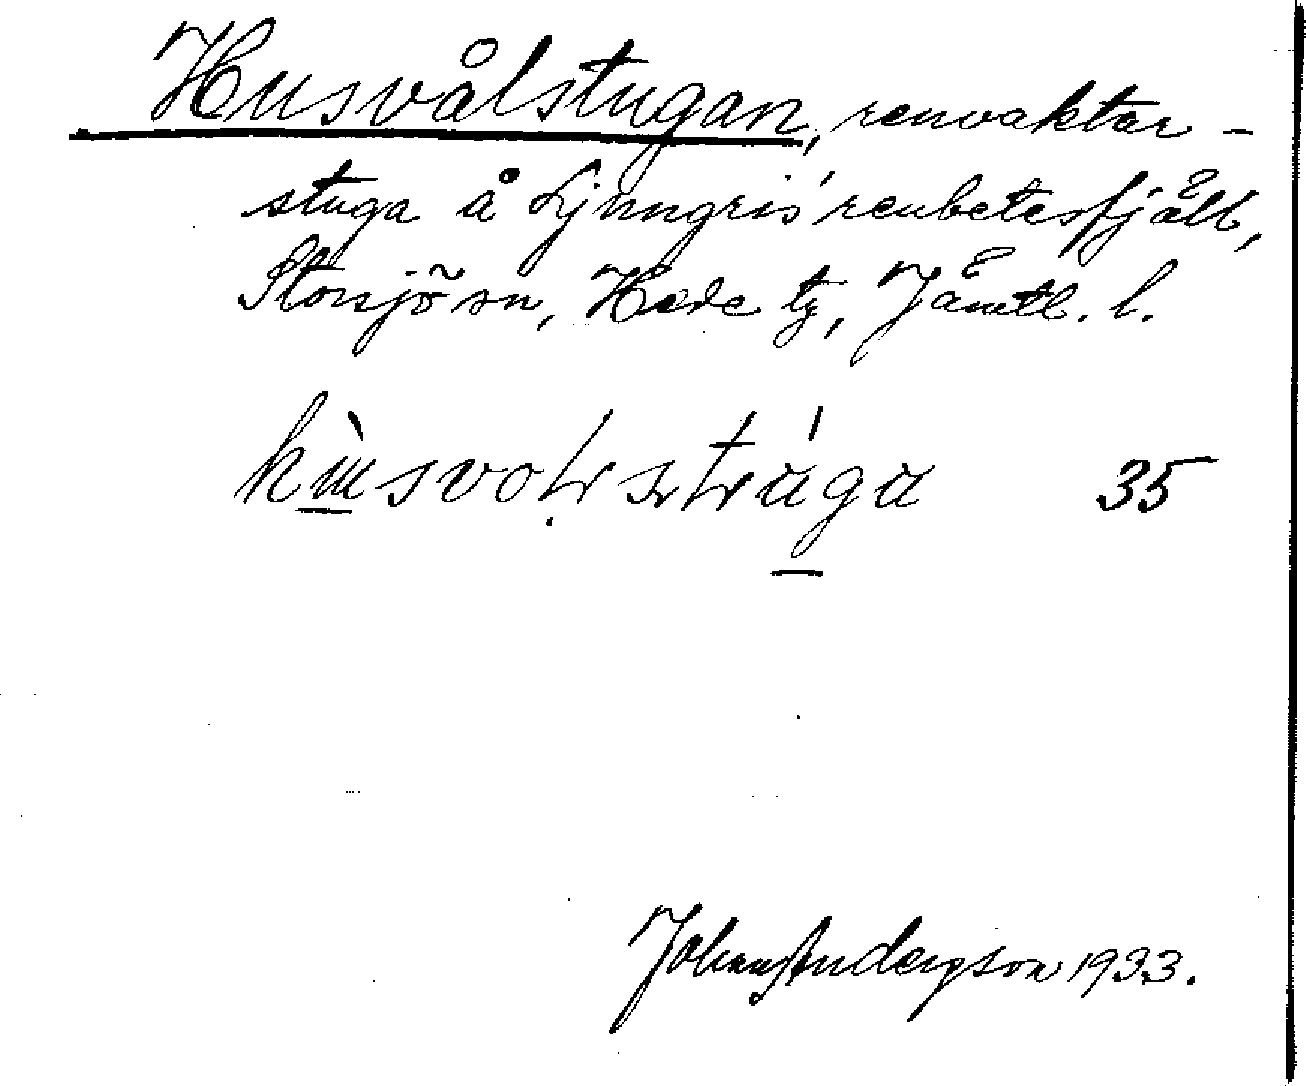 Husvålstugan, renvaktar-
stuga å Ljungris' renbetesfjäll,
Storsjö sn, Hede tg, Jämtl. l.
35
Johan Anderson 1933.